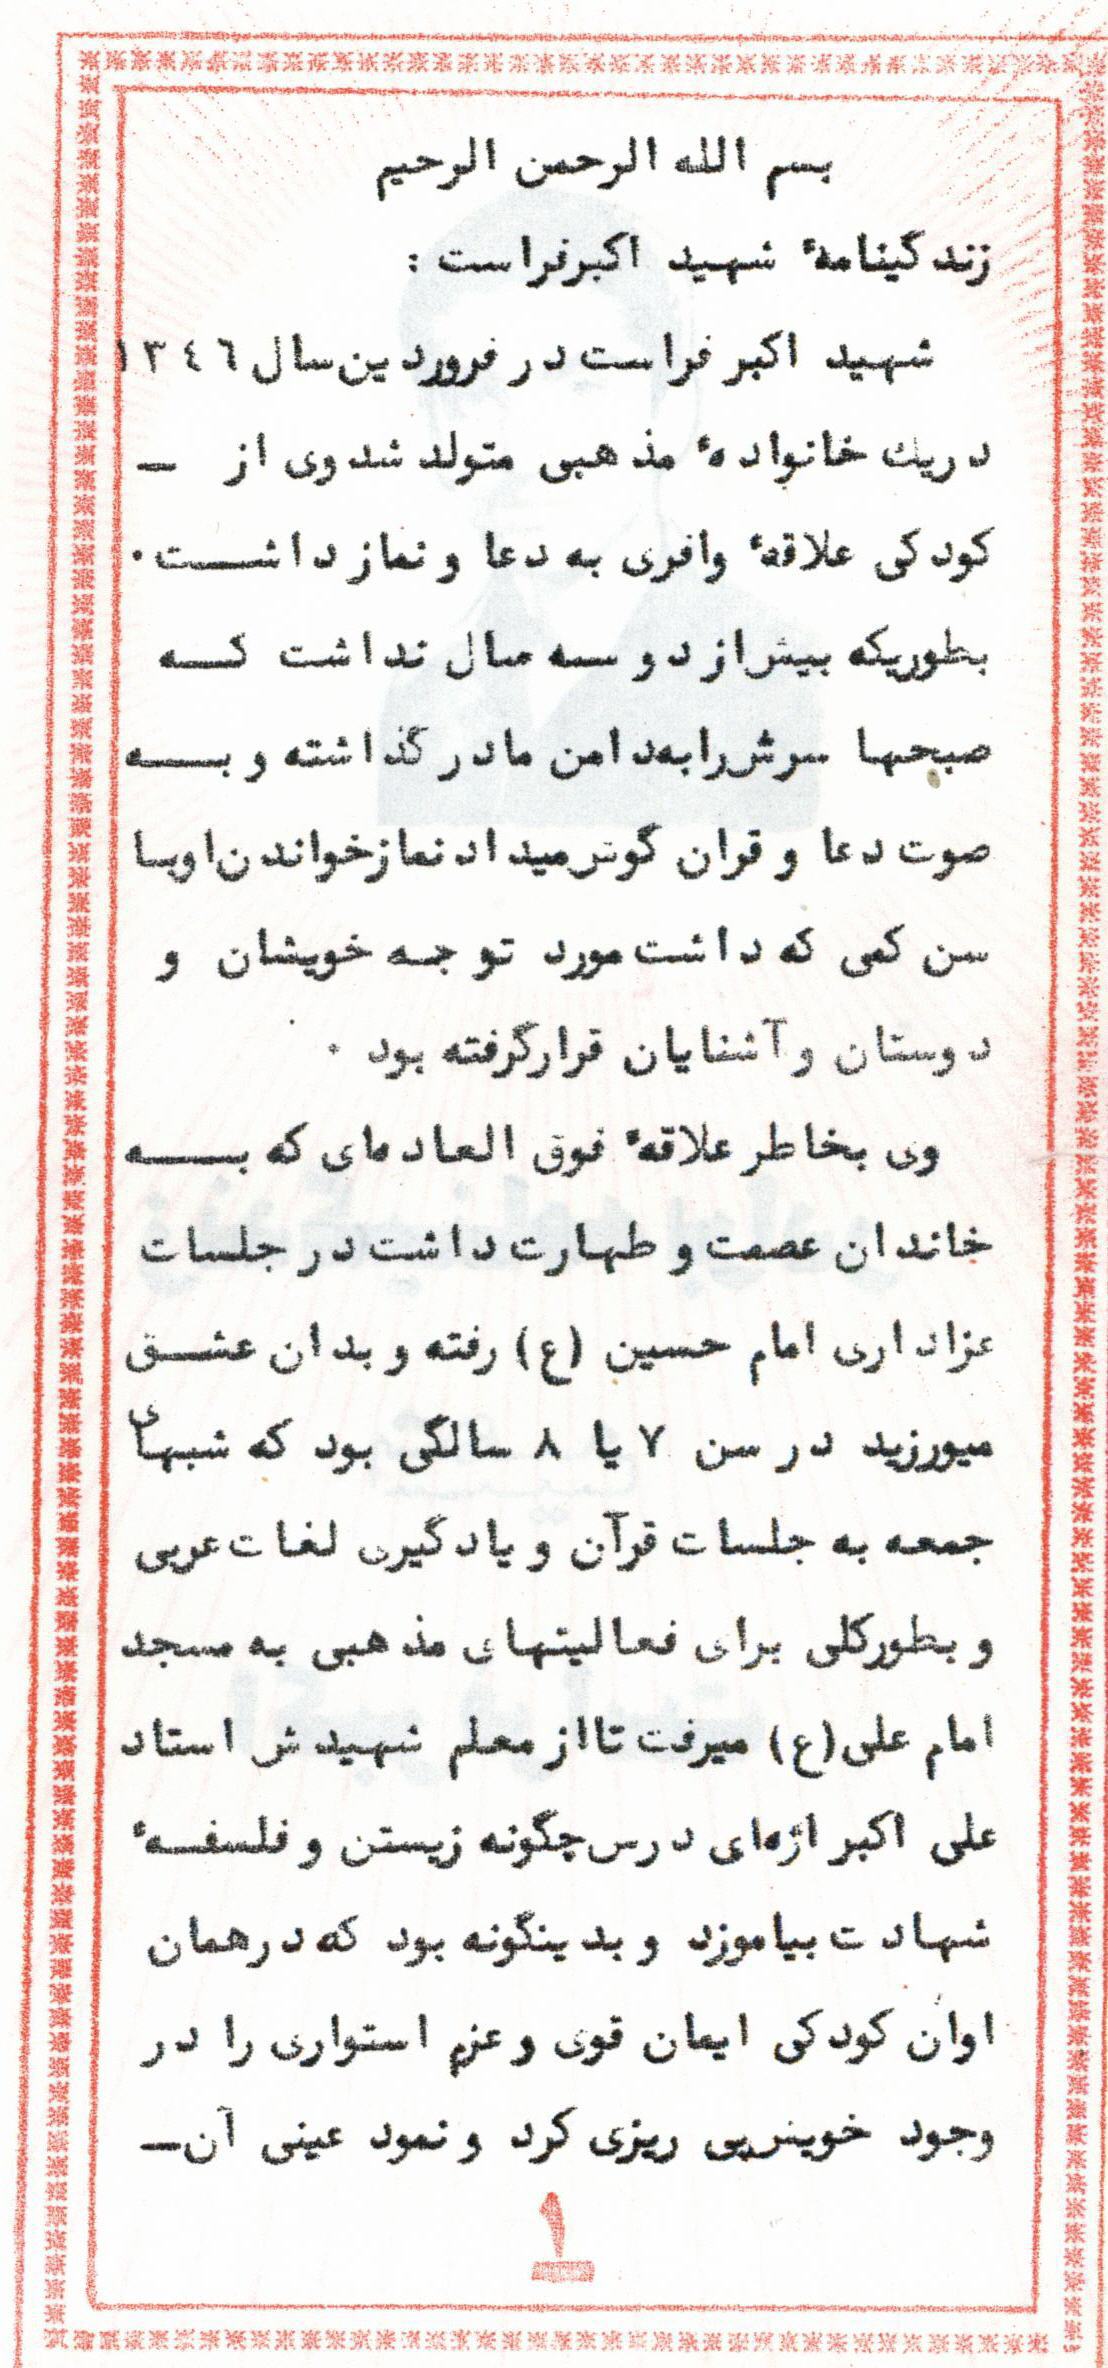 بسم الله الرحمن الرحیم
زندگینامهٔ شهید اکبرفراست :
شهید اکبر فراست در فروردین سال ۱۳٤٦
دریك خانوادهٔ مذهبی متولد شد وی از –
کودکی علاقهٔ وافری به دعا و نماز داشت .
بطوریکه بیش از دو سه سال نداشت که
صبحها سرش را به دامن مادر گذاشته و به
صوت دعا و قران گوش میداد نماز خواندن او با
سن کمی که داشت مورد توجه خویشان و
دوستان و آشنایان قرار گرفته بود .
وی بخاطر علاقهٔ فوق العاده‌ای که به
خاندان عصمت و طهارت داشت در جلسات
عزاداری امام حسین (ع) رفته و بدان عشق
میورزید در سن ۷ یا ۸ سالگی بود که شبهای
جمعه به جلسات قرآن و یادگیری لغات عربی
و بطورکلی برای فعالیتهای مذهبی به مسجد
امام علی (ع) میرفت تا از معلم شهیدش استاد
علی اکبر اژه‌ای درس چگونه زیستن و فلسفهٔ
شهادت بیاموزد و بدینگونه بود که در همان
اوان کودکی ایمان قوی و عزم استواری را در
وجود خویش پی ریزی کرد و نمود عینی آن –
۱